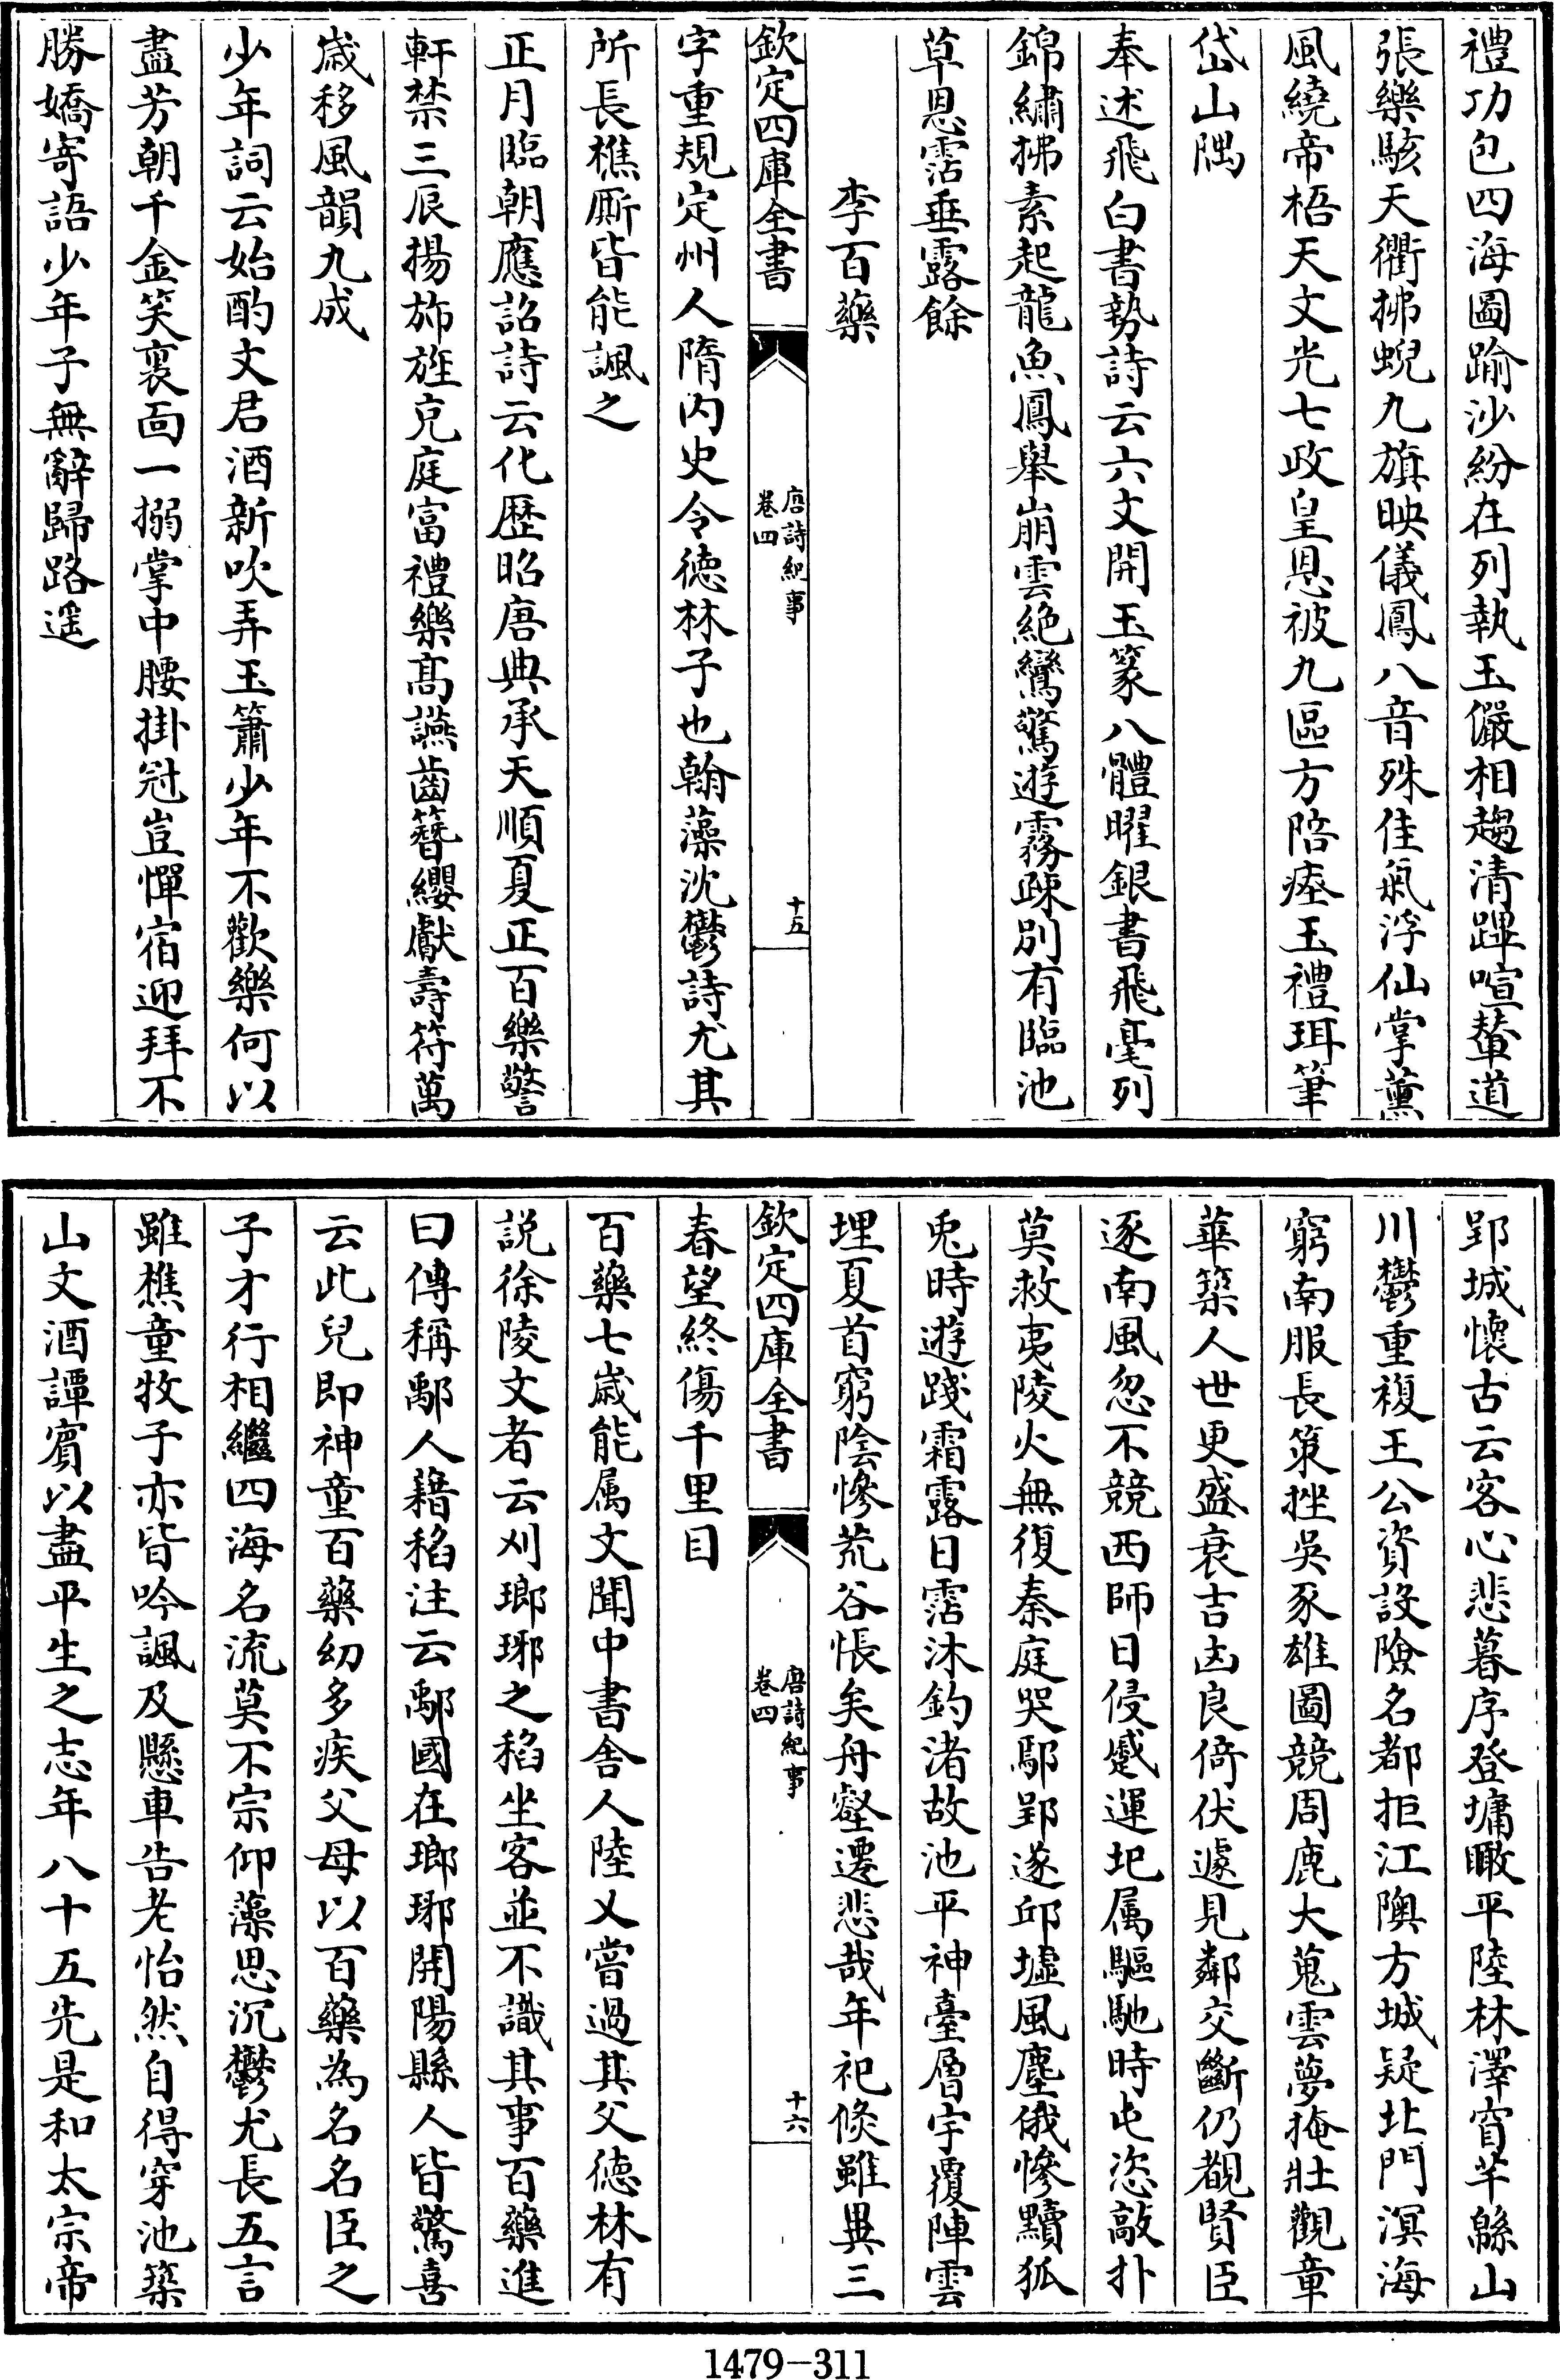 禮功包四海圖踰沙紛在列執玉儼相趨清蹕喧輦道
張樂駭天衢拂蜺九旗映儀鳳八音殊佳氣浮仙掌薰
風繞帝梧天文光七政皇恩被九區方陪瘞玉禮珥筆
岱山隅
奉述飛白書勢詩云六文開玉篆八體曜銀書飛毫列
錦繡拂素起龍魚鳳舉崩雲絶鸞驚遊霧疎別有臨池
草恩霑垂露餘
李百藥
欽定四庫全書
唐詩紀事
卷四
十五
字重規定州人隋内史令徳林子也翰藻沈鬱詩尤其
所長樵厮皆能諷之
正月臨朝應詔詩云化歴昭唐典承天順夏正百樂警
軒禁三辰揚斾旌充庭富禮樂髙讌齒簪纓獻壽符萬
嵗移風韻九成
少年詞云始酌文君酒新吹弄玉簫少年不歡樂何以
盡芳朝千金笑裏面一搦掌中腰掛冠豈憚宿迎拜不
勝嬌寄語少年子無辭歸路遥
郢城懷古云客心悲暮序登墉瞰平陸林澤窅芊緜山
川鬱重複王公資設險名都拒江隩方城疑北門溟海
窮南服長策挫吳豕雄圖競周鹿大蒐雲夢掩壯觀章
華築人世更盛衰吉凶良倚伏遽見鄰交斷仍覩賢臣
逐南風忽不競西師日侵蹙運圮属驅馳時屯恣敲扑
莫救夷陵火無復秦庭哭鄢郢遂邱墟風塵俄慘黷狐
兎時遊踐霜露日霑沐釣渚故池平神臺層宇覆陣雲
埋夏首窮陰慘荒谷悵矣舟壑遷悲哉年祀倐雖異三
欽定四庫全書
唐詩紀事
卷四
十六
春望終傷千里目
百藥七嵗能属文聞中書舍人陸乂嘗過其父徳林有
説徐陵文者云刈瑯琊之稻坐客並不識其事百藥進
曰傳稱鄅人藉稻注云鄅國在瑯琊開陽縣人皆驚喜
云此兒即神童百藥幼多疾父母以百藥為名名臣之
子才行相繼四海名流莫不宗仰藻思沉鬱尤長五言
雖樵童牧子亦皆吟諷及懸車告老怡然自得穿池築
山文酒譚賔以盡平生之志年八十五先是和太宗帝
1479-311